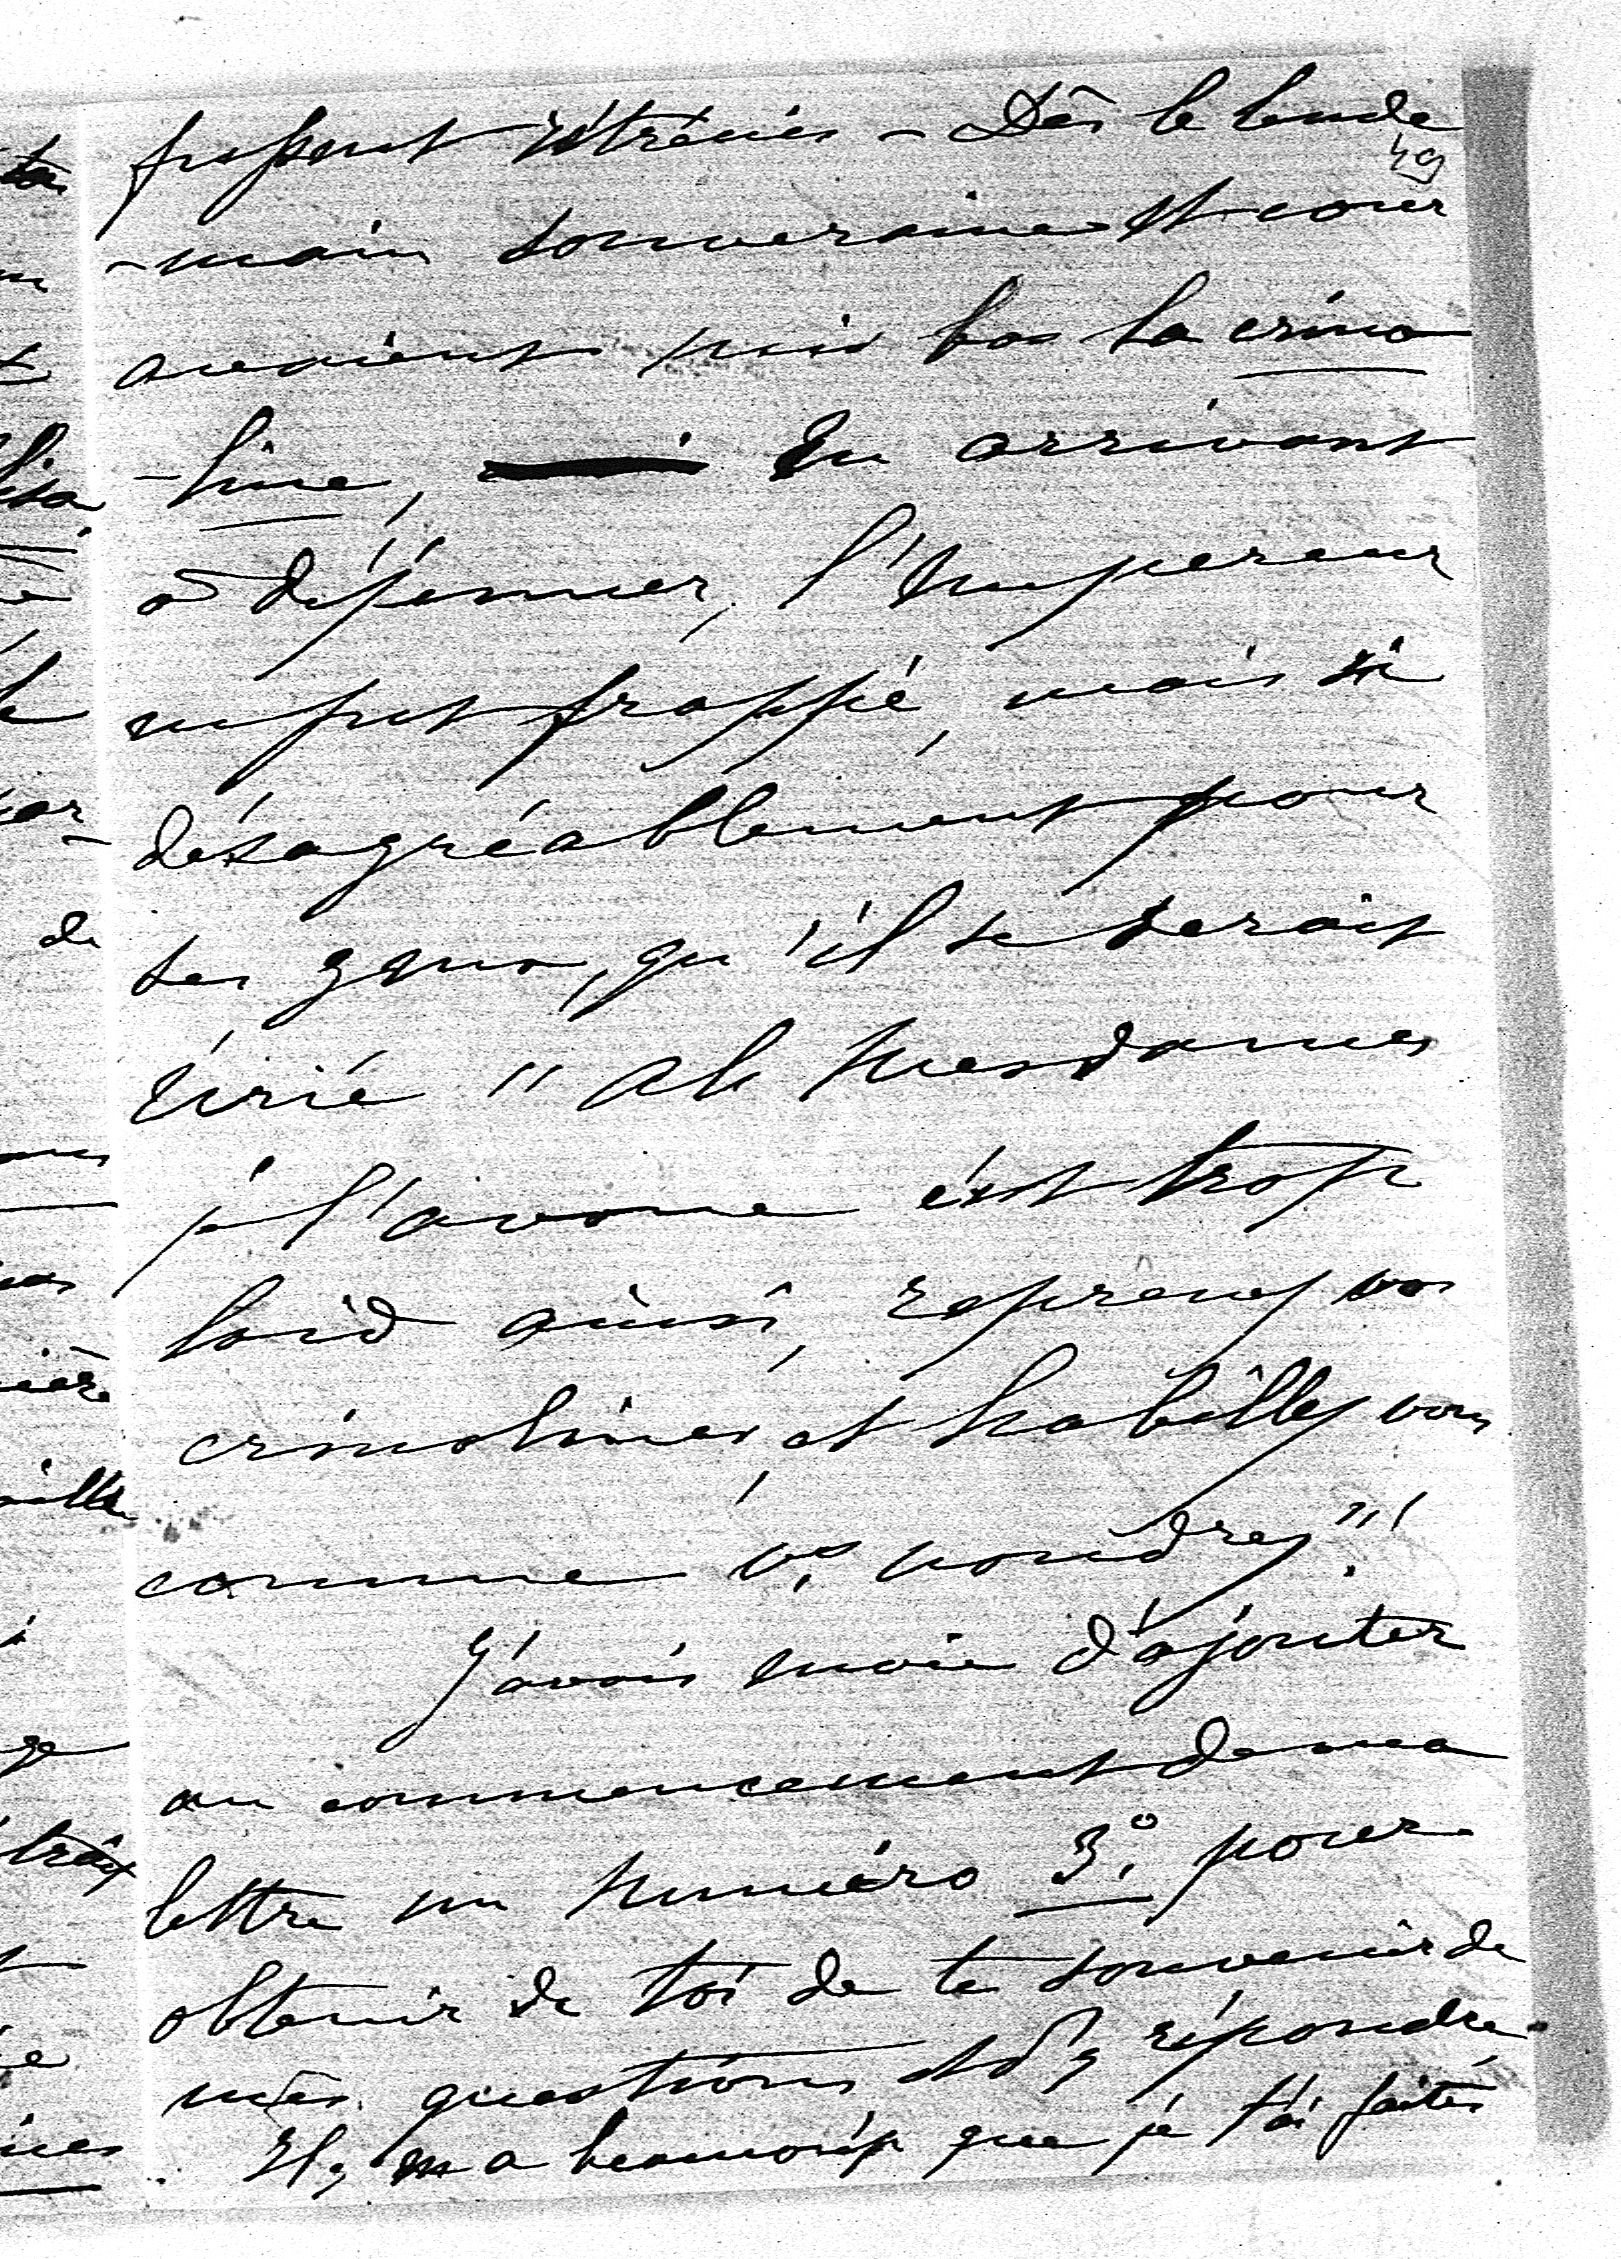 fussent rétrécies – Dès le lende
49
-main souveraine et cour
avaient mis bas la crino
-line, En arrivant
à déjeuner, l'Empereur
en fut frappé, mais si
désagréablement pour
ses yeux, qu'il se serait
écrié " Ah Mesdames
je l'avoue c'est trop
laid ainsi, reprenez vos
crinolines, et habillez vous
comme vs voudrez"!!!
J'avais envie d'ajouter
au commencement de ma
lettre un numéro 3º pour
obtenir de toi de te souvenir de
mes questions et d'y répondre.
Il y en a beaucoup que je t'ai faites